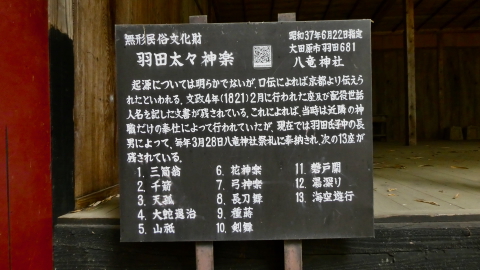 無形民俗文化財
羽田太々神楽
昭和37年6月22日指定
大田原市羽田681
八竜神社
起源については明らかでないが、口伝によれば京都より伝えら
れたといわれる。文政4年(1821)2月に行われた座及び配役世話
人名を記した文書が残されている。これによれば、当時は近隣の神
職だけの奉仕によって行われていたが、現在では羽田氏子中の長
男によって、毎年3月28日八竜神社祭礼に奉納され、次の13座が
残されている。
1. 三筒翁
2. 千箭
3. 天狐
4. 大蛇退治
5. 山祇
6. 花神楽
7. 弓神楽
8. 長刀舞
9. 種蒔
10. 剣舞
11. 磐戸開
12. 湯深り
13. 海空遊行